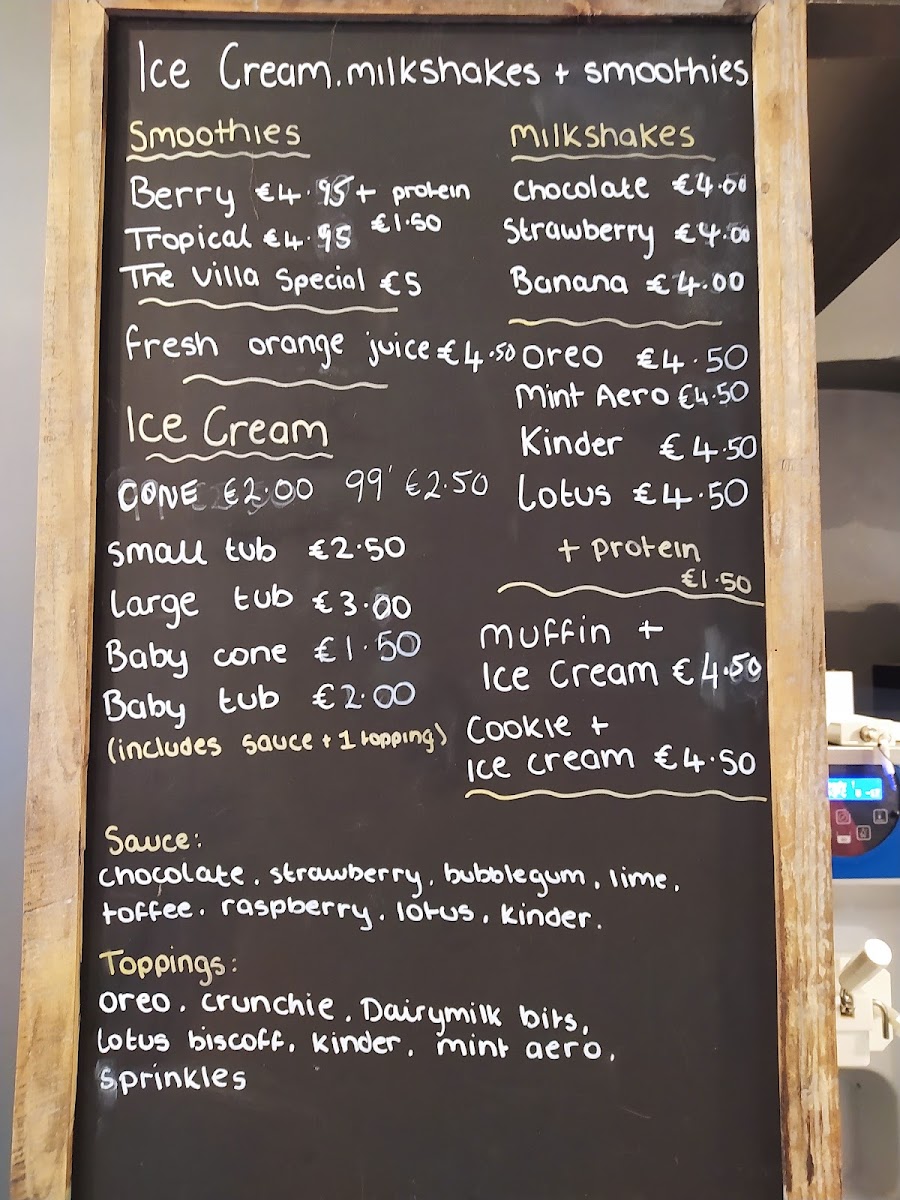 Ice Cream. milkshakes + smoothies
Smoothies
Berry €4.95 + protein
€1.50
Tropical €4.95
The Villa Special €5
fresh orange juice €4.50
Ice Cream
CONE €2.00 99' €2.50
small tub €2.50
large tub €3.00
Baby cone €1.50
Baby tub €2.00
(includes sauce + 1 topping)
Milkshakes
chocolate €4.00
Strawberry €4.00
Banana €4.00
oreo €4.50
Mint Aero €4.50
Kinder €4.50
Lotus €4.50
+ protein
€1.50
Muffin +
Ice Cream €4.50
Cookie +
Ice cream €4.50
Sauce:
chocolate. strawberry, bubblegum, lime,
toffee. raspberry. lotus. kinder.
Toppings:
oreo. crunchie, Dairymilk bits,
Lotus biscoff. kinder. mint aero,
sprinkles